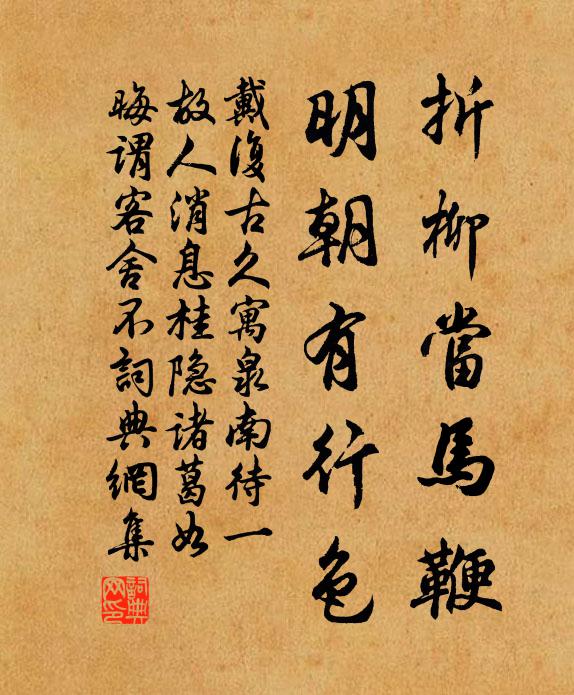 折柳當馬鞭
明朝有行色
戴復古久寓泉南待一
故人消息桂隐诸葛如
晦谓客舍不詞典網集
詞典网印